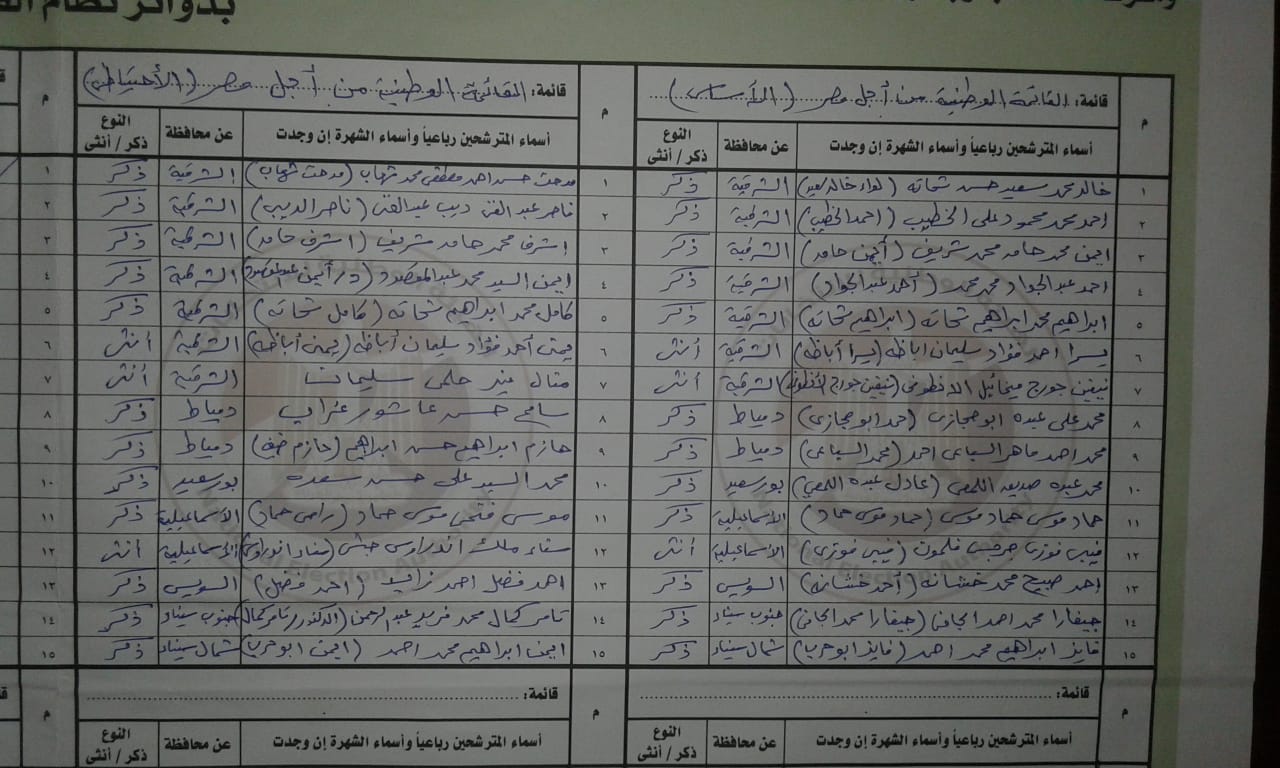 بدوائر نظام
قائمة: القائمة الوطنية من أجل مصر (الأساسى)
م
أسماء المترشحين رباعياً وأسماء الشهرة إن وجدت
عن محافظة
النوع ذكر / أنثى
١ خالد محمد سعيد حسن شحاته (لواء خالد سعيد) الشرقية ذكر
٢ احمد محمد محمود على الخطيب (احمد الخطيب) الشرقية ذكر
٣ ايمن محمد حامد محمد شريف (أيمن حامد) الشرقية ذكر
٤ احمد عبد الجواد محمد محمد (أحمد عبد الجواد) الشرقية ذكر
٥ ابراهيم محمد ابراهيم شحاته (ابراهيم شحاته) الشرقية ذكر
٦ يسرا احمد فؤاد سليمان اباظه (يسرا أباظه) الشرقية أنثى
٧ نيفين جورج ميخائيل (نيفين جورج) الشرقية أنثى
٨ محمد على عبده ابو حجازى (حمد ابو حجازى) دمياط ذكر
٩ محمد احمد ماهر السباعى احمد (محمد السباعى) دمياط ذكر
١٠ محمد عبده اللمعى (عادل عبده اللمعى) بورسعيد ذكر
١١ حماد موسى حماد موسى (حماد موسى حماد) الاسماعيلية ذكر
١٢ فيبى فوزى جرجس (فيبى فوزى) الاسماعيلية أنثى
١٣ احمد صبيح محمد خشانه (أحمد خشانه) السويس ذكر
١٤ جيفارا محمد احمد الجافى (جيفارا محمد الجافى) جنوب سيناء ذكر
١٥ فايز ابراهيم محمد احمد (فايز ابو حربا) شمال سيناء ذكر
قائمة: القائمة الوطنية من أجل مصر (الأحتياطى)
م
أسماء المترشحين رباعياً وأسماء الشهرة إن وجدت
عن محافظة
النوع ذكر / أنثى
١ مدحت حسن احمد مصطفى محمد شهاب (مدحت شهاب) الشرقية ذكر
٢ ناصر عبد الغنى ديب عبد الغنى (ناصر الديب) الشرقية ذكر
٣ اشرف محمد حامد شريف (اشرف حامد) الشرقية ذكر
٤ ايمن السيد محمد عبد المقصود (د/ أيمن عبد المقصود) الشرقية ذكر
٥ كامل محمد ابراهيم شحاته (كامل شحاته) الشرقية ذكر
٦ يمنى أحمد فؤاد سليمان أباظه (يمنى أباظه) الشرقية أنثى
٧ منال منير حلمى الشرقية أنثى
٨ سامح حسن عاشور دمياط ذكر
٩ حازم ابراهيم حسن ابراهيم (حازم) دمياط ذكر
١٠ محمد السيد على حسن سعده بورسعيد ذكر
١١ موسى فتحى موسى حماد (رامى حماد) الاسماعيلية ذكر
١٢ سناء ملاك اندراوس حبشى الاسماعيلية أنثى
١٣ احمد فضل احمد (احمد فضل) السويس ذكر
١٤ تامر كمال محمد فريد عبد الرحمن (الدكتور/ تامر كمال) جنوب سيناء ذكر
١٥ ايمن ابراهيم محمد احمد (ايمن ابو حربا) شمال سيناء ذكر
قائمة:
م
أسماء المترشحين رباعياً وأسماء الشهرة إن وجدت
عن محافظة
النوع ذكر / أنثى
قائمة:
م
أسماء المترشحين رباعياً وأسماء الشهرة إن وجدت
عن محافظة
النوع ذكر / أنثى